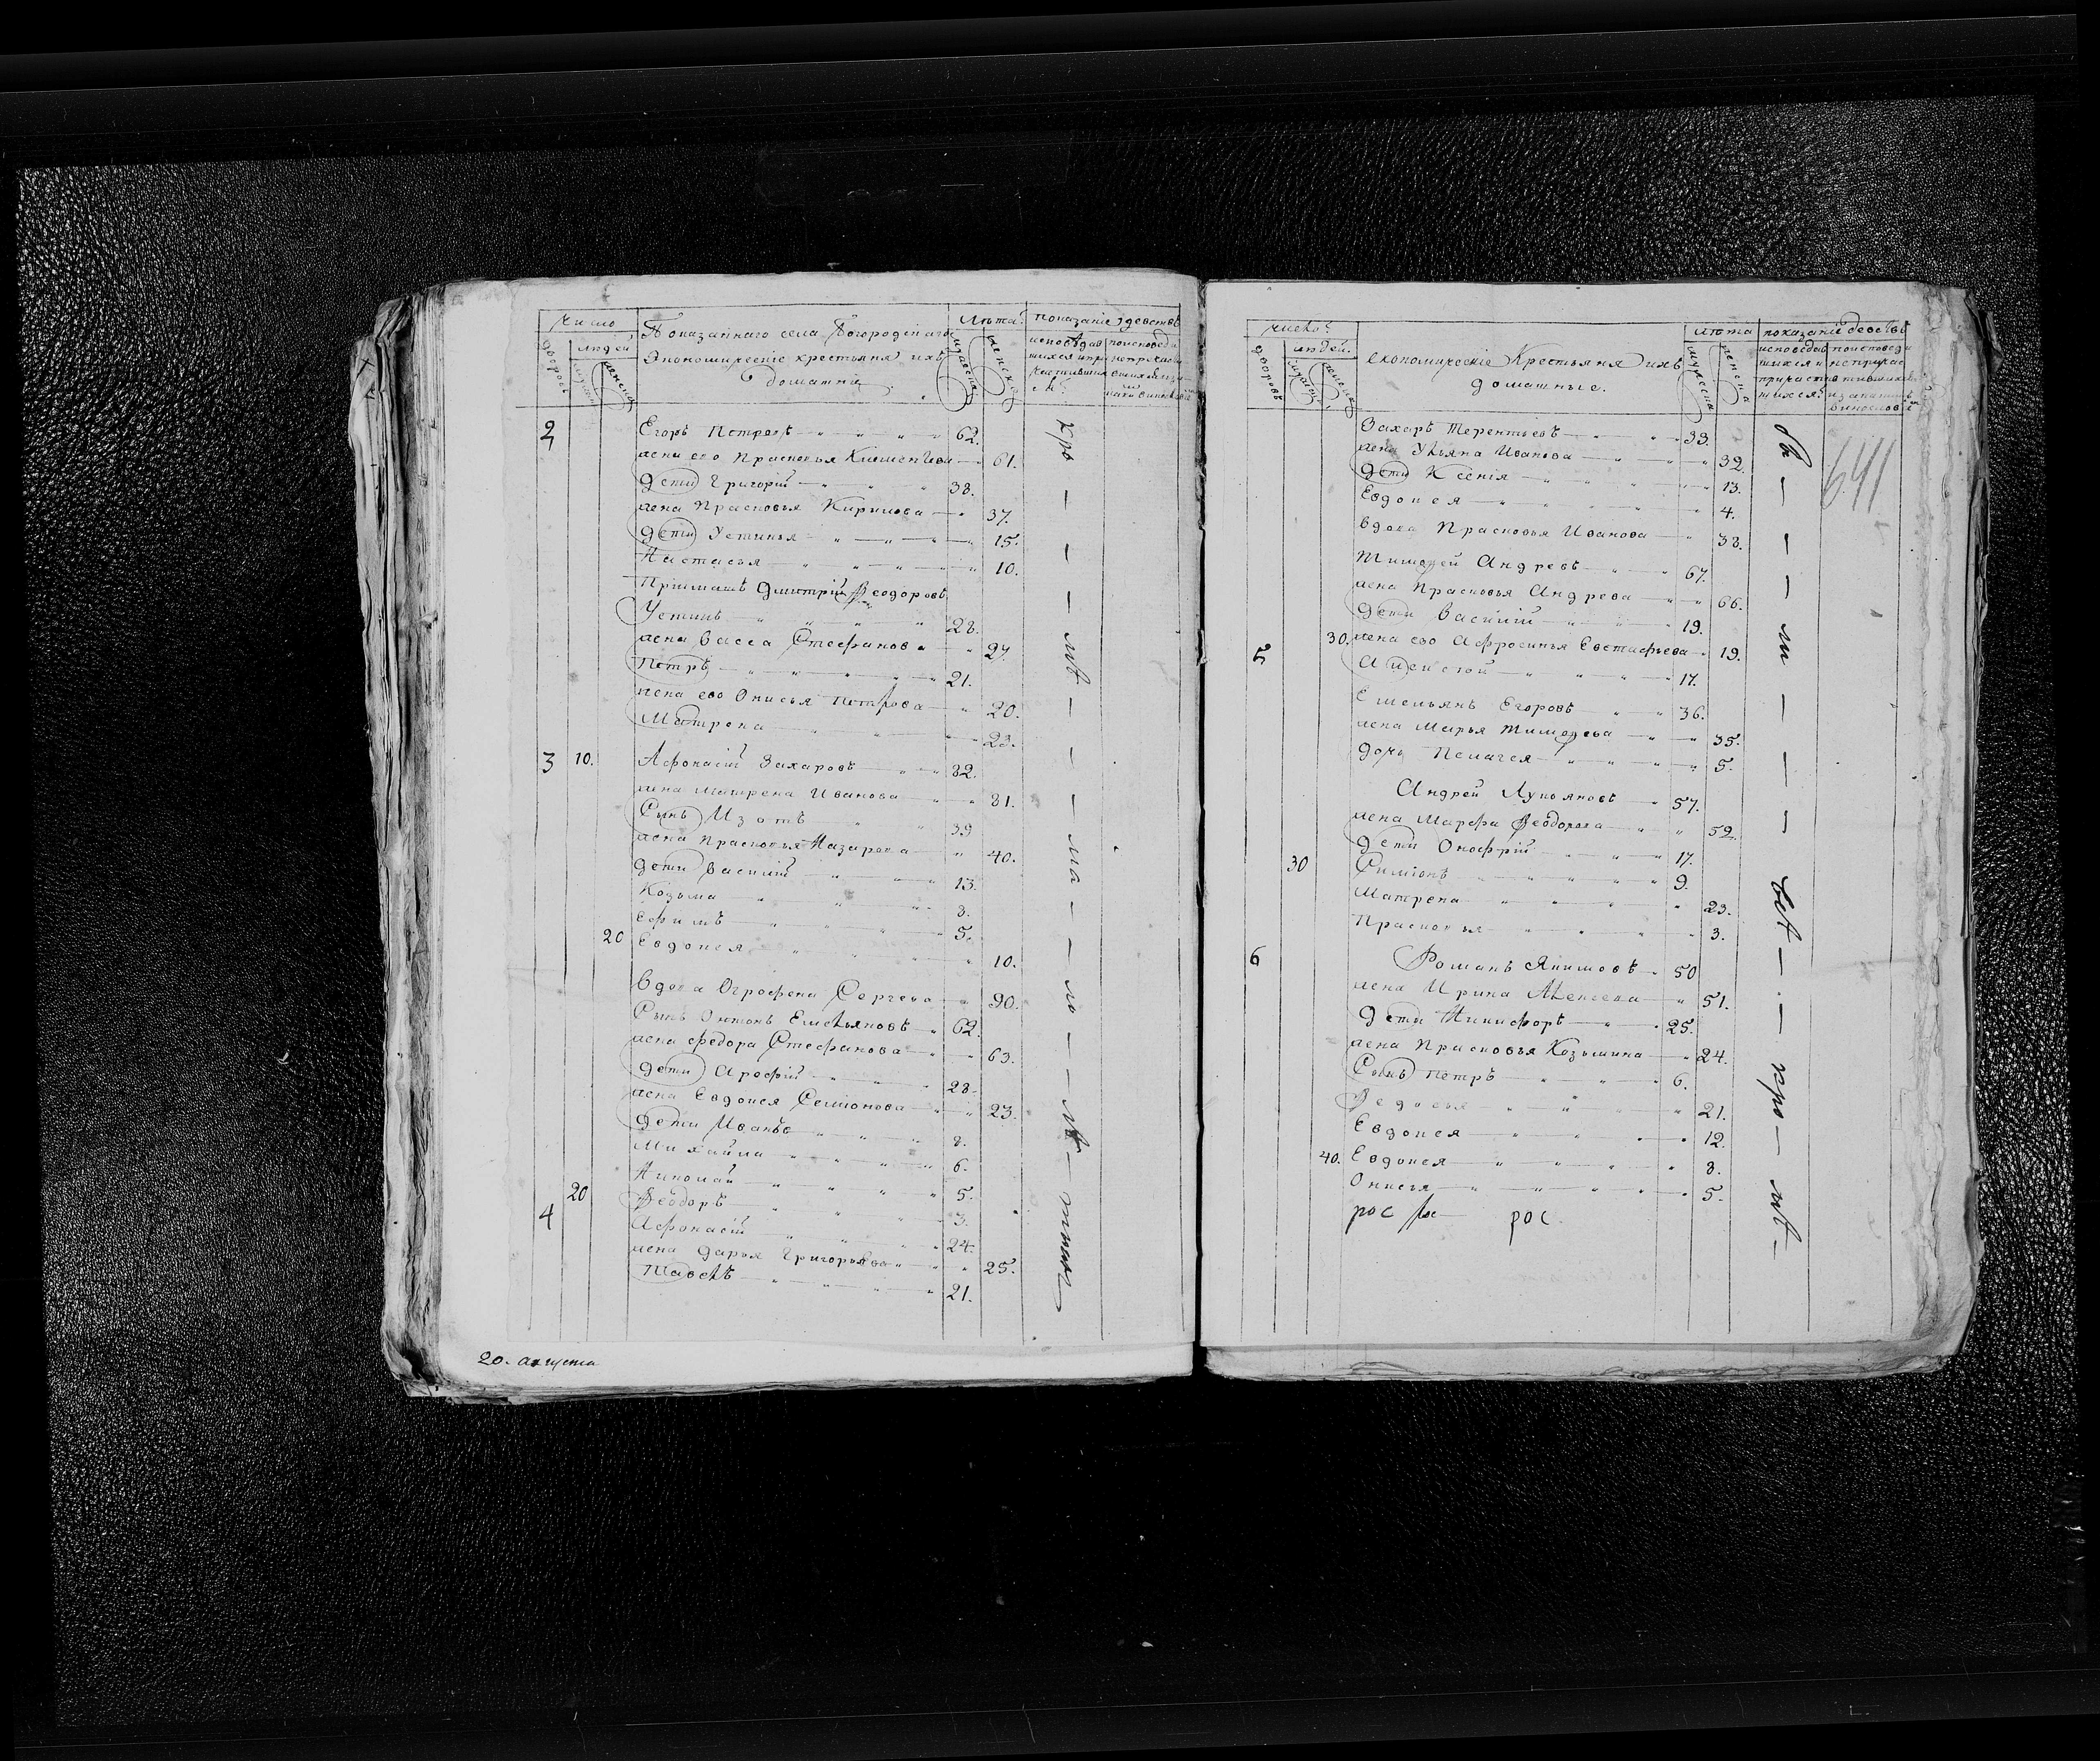 число
людей
дворовъ
мужеска
женска
Показаннаго села Богородскаго
Экономическіе крестьяня ихъ
домашнія
лѣта
мужеска
женска
показаніе действъ
исповѣдав
шихся и при
частивших
ся
2 Егоръ Петровъ 62.
жена его Прасковья Климентьева 61.
дети Григорій 38.
жена Прасковья Кирилова 37.
дети Устинья 15.
Настасья 10.
Примакъ Дмитрій Ѳеодоровъ
Устинъ 28.
жена Васса Стефанова 27.
Петръ 21.
жена его Онисья Петрова 20.
Матрена 23.
3 10. Афонасій Захаровъ 82.
жена Матрена Иванова 81.
Сынъ Изотъ 39
жена Прасковья Назарова 40.
дети Василій 13.
Козьма 8.
Ефимъ 5.
20 Евдокея 10.
вдова Огрофена Сергеева 90.
Сынъ Антонъ Емельяновъ 62.
жена Федора Стефанова 63.
дети Арефій 28.
жена Евдокея Семионова 23.
дети Иванъ 8.
Михайла 6.
Николай 5.
20 Ѳеодоръ 3.
4 Афонасій 24.
жена Дарья Григорьева 25.
Павелъ 21.
20. августа
число
людей.
дворовъ
економическіе Крестьяня ихъ
домашные.
лѣта
мужеска
женска
показаніе действъ
641
Захаръ Терентьевъ 33.
жена Ульяна Иванова 32.
дети Ксенія 13.
Евдокея 4.
вдова Прасковья Иванова 38.
Тимоѳей Андревъ 67.
жена Прасковья Андрева 66.
дети Василій 19.
30. жена его Афросинья Евстафьева 19.
5 Алексей 17.
Емельянъ Егоровъ 36.
жена Марья Тимоѳева 35.
дочь Пелагея 5.
Андрей Лукояновъ 57.
жена Марфа Ѳеодорова 52.
дети Онофрій 17.
30 Симіонъ 9.
Матрена 23.
Прасковья 3.
6 Романъ Якимовъ 50
жена Ирина Алексева 51.
дети Никифоръ 25.
жена Прасковья Козьмина 24.
Сынъ Петръ 6.
Ѳедосья 21.
Евдокея 12.
40. Евдокея 8.
Онисья 5.
рос рос рос